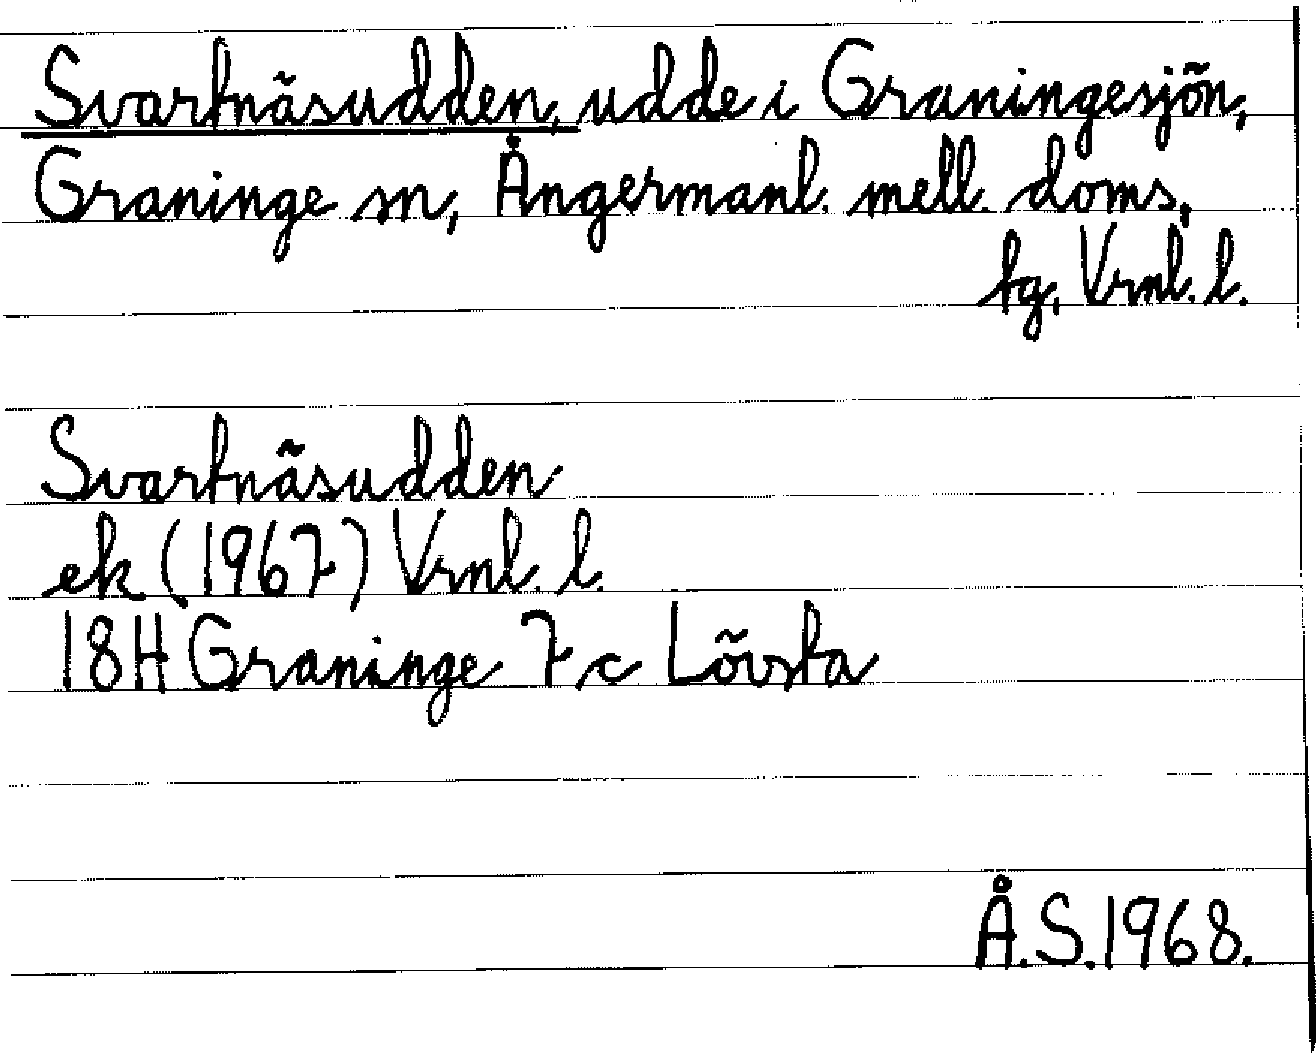 Svartnäsudden, udde i Graningesjön,
Graninge sn, Ångermanl. mell. doms.
tg, Vrnl. l.
Svartnäsudden
ek (1967) Vrnl. l.
18H Graninge 7 c Lövsta
Å.S. 1968.